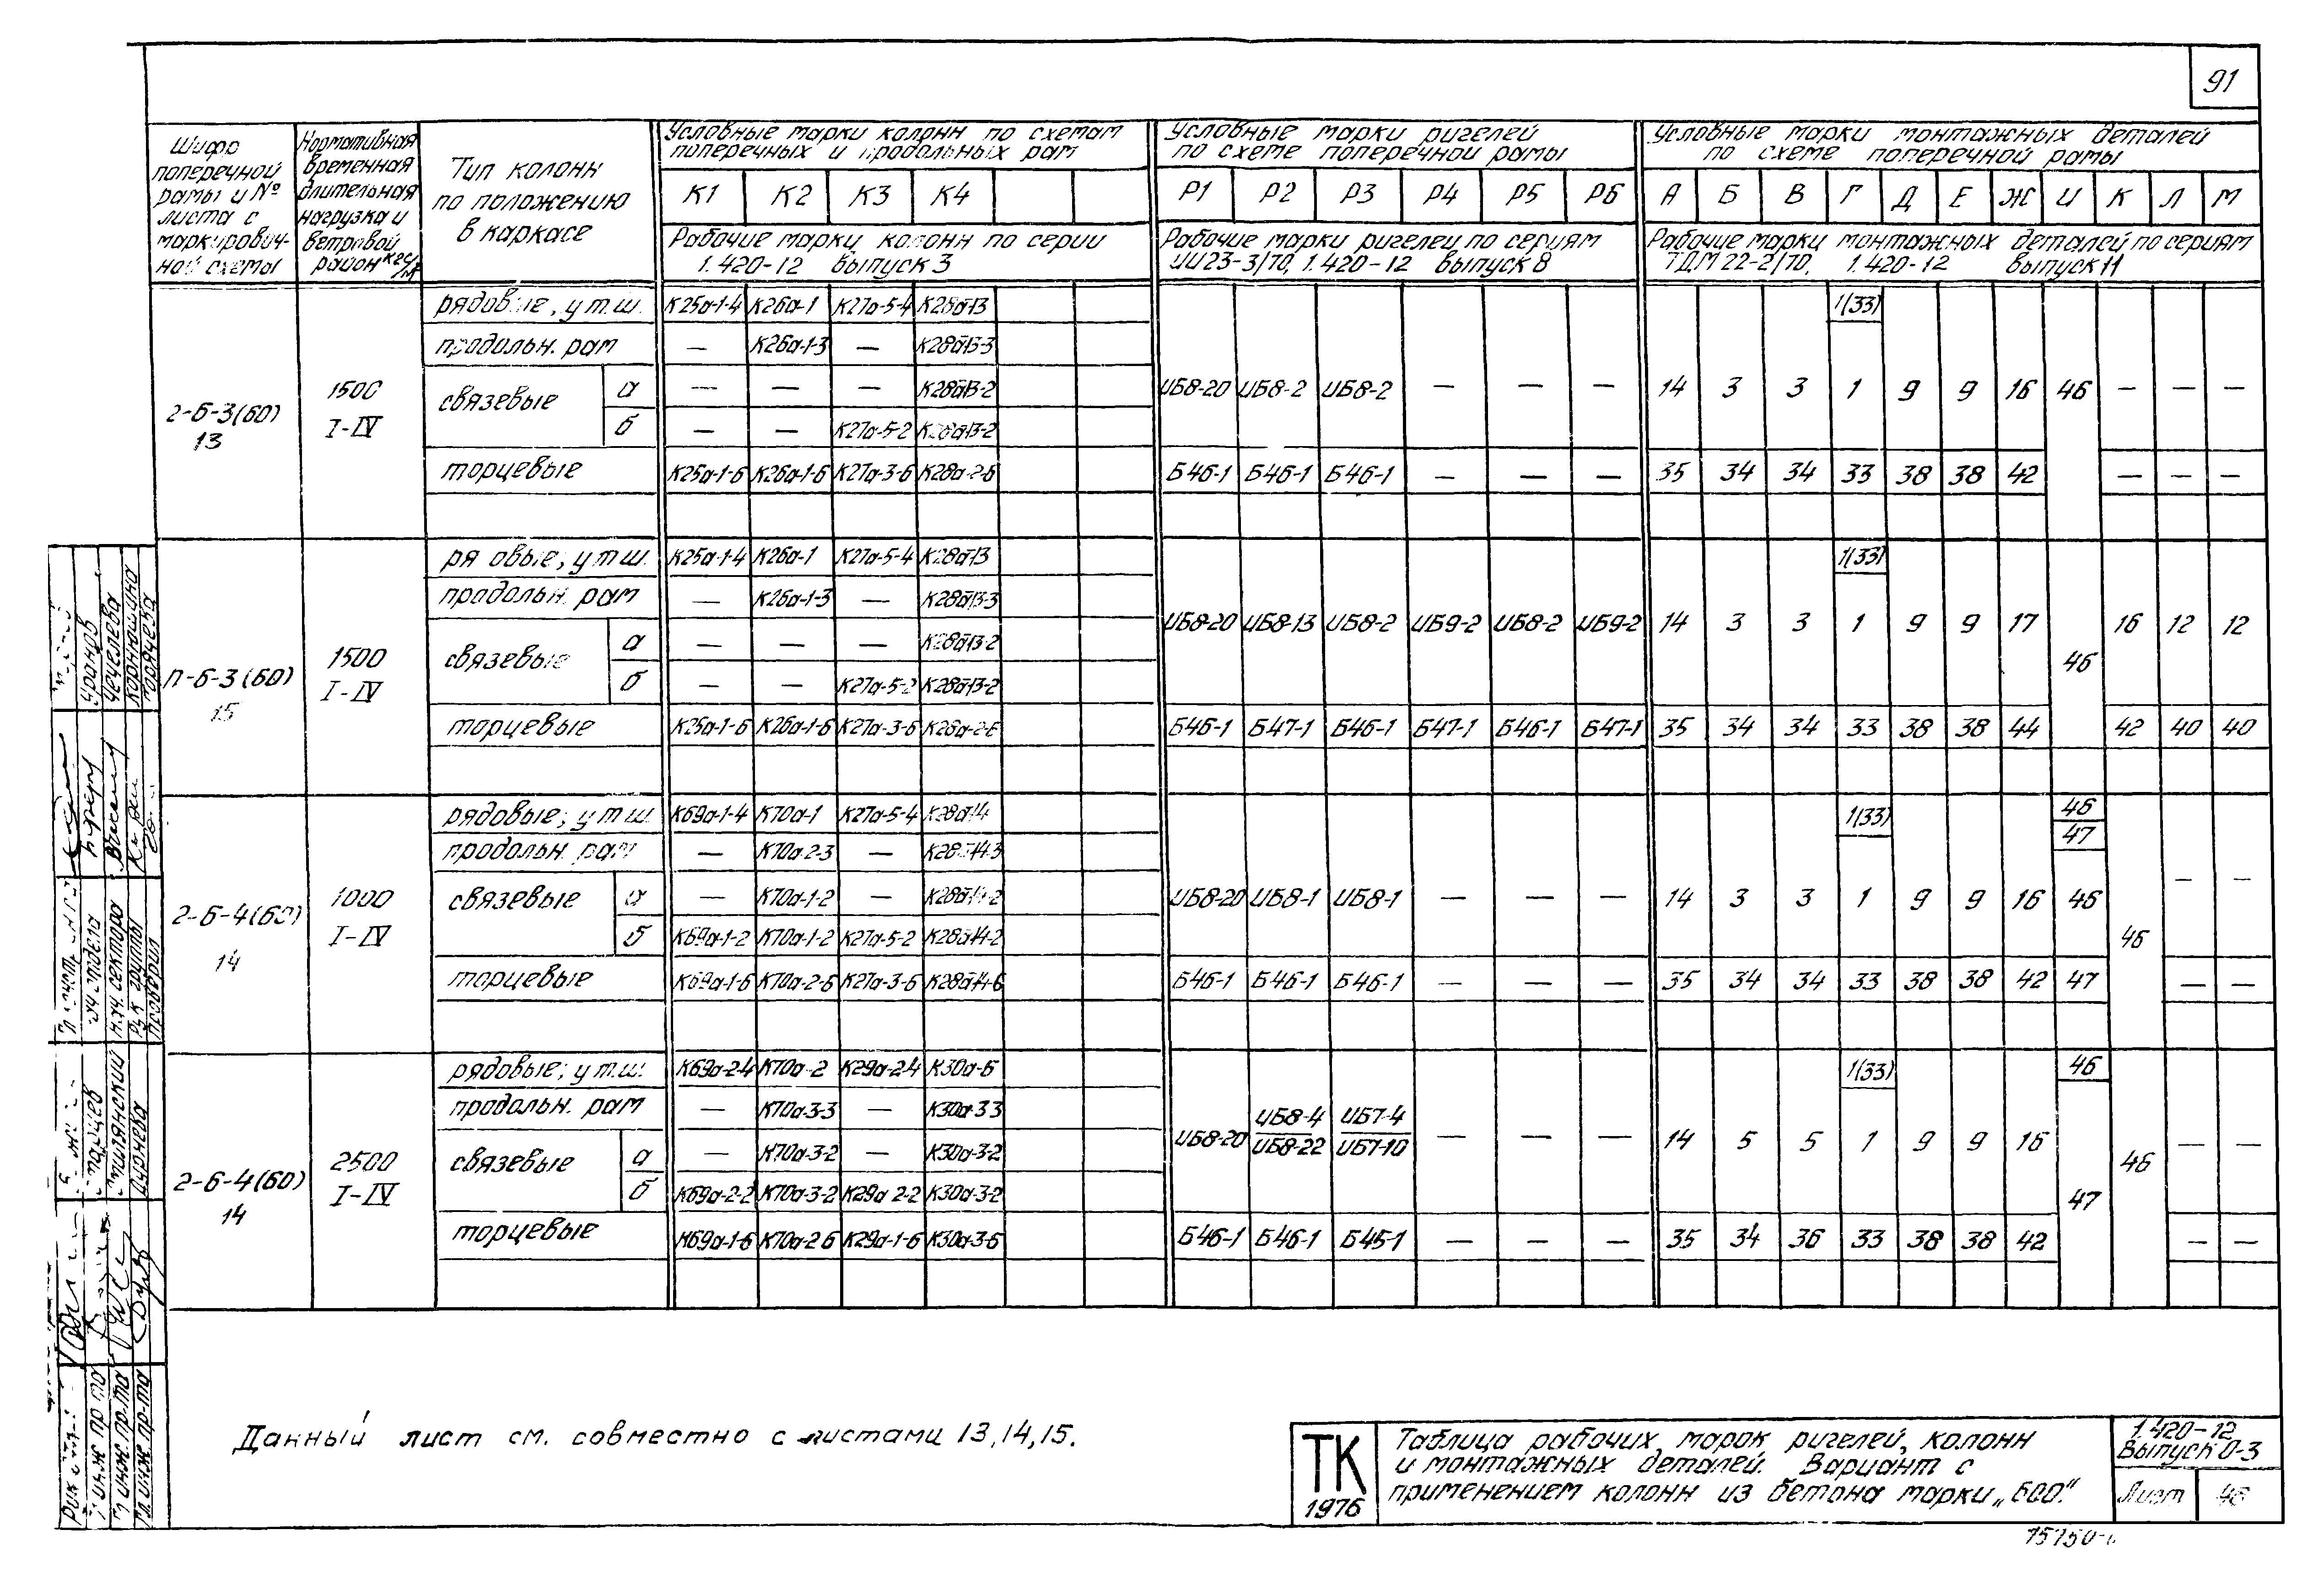 91
Шифр поперечной рамы и № листа с маркировочной схемы
Нормативная временная длительная нагрузка и ветровой район кгс/м²
Тип колонн по положению в каркасе
Условные марки колонн по схемам поперечных и продольных рам
К1 К2 К3 К4
Рабочие марки колонн по серии 1.420-12 выпуск 3
Условные марки ригелей по схеме поперечной рамы
Р1 Р2 Р3 Р4 Р5 Р6
Рабочие марки ригелей по сериям ИИ23-3/70, 1.420-12 выпуск 8
Условные марки монтажных деталей по схеме поперечной рамы
А Б В Г Д Е Ж И К Л М
Рабочие марки монтажных деталей по сериям ТДМ22-2/70, 1.420-12 выпуск 11
2-6-3(60)
13
1500
I-IV
рядовые, у т.ш. К25а-1-4 К26а-1 К27а-5-4 К28а-13 1(33)
продольн. рам — К26а-1-3 — К28а-13-3
связевые а — — — К28а-13-2
ИБ8-20 ИБ8-2 ИБ8-2 — — — 14 3 3 1 9 9 16 46 — — —
б — — К27а-5-2 К28а-13-2
торцевые К25а-1-6 К26а-1-6 К27а-3-6 К28а-2-6 Б46-1 Б46-1 Б46-1 — — — 35 34 34 33 38 38 42 — — —
П-6-3(60)
15
1500
I-IV
рядовые, у т.ш. К25а-1-4 К26а-1 К27а-5-4 К28а-13 1(33)
продольн. рам — К26а-1-3 — К28а-13-3
ИБ8-20 ИБ8-13 ИБ8-2 ИБ9-2 ИБ8-2 ИБ9-2 14 3 3 1 9 9 17 46 16 12 12
связевые а — — — К28а-13-2
б — — К27а-5-2 К28а-13-2
торцевые К25а-1-6 К26а-1-6 К27а-3-6 К28а-2-6 Б46-1 Б47-1 Б46-1 Б47-1 Б46-1 Б47-1 35 34 34 33 38 38 44 42 40 40
2-6-4(60)
14
1000
I-IV
рядовые, у т.ш. К69а-1-4 К70а-1 К27а-5-4 К28а-14 1(33) 46
47
продольн. рам — К70а-2-3 — К28а-14-3
связевые а — К70а-1-2 — К28а-14-2
ИБ8-20 ИБ8-1 ИБ8-1 — — — 14 3 3 1 9 9 16 46 46 — —
б К69а-1-2 К70а-1-2 К27а-5-2 К28а-14-2
торцевые К69а-1-6 К70а-2-6 К27а-3-6 К28а-14-6 Б46-1 Б46-1 Б46-1 — — — 35 34 34 33 38 38 42 47 — —
2-6-4(60)
14
2500
I-IV
рядовые, у т.ш. К69а-2-4 К70а-2 К29а-2-4 К30а-6 1(33) 46
продольн. рам — К70а-3-3 — К30а-3-3
ИБ8-20 ИБ8-4 ИБ7-4 — — — 14 5 5 1 9 9 16 47 46 — —
ИБ8-22 ИБ7-10
связевые а — К70а-3-2 — К30а-3-2
б К69а-2-2 К70а-3-2 К29а-2-2 К30а-3-2
торцевые К69а-1-6 К70а-2-6 К29а-1-6 К30а-3-6 Б46-1 Б46-1 Б45-1 — — — 35 34 36 33 38 38 42 — —
Данный лист см. совместно с листами 13, 14, 15.
ТК
1976
Таблица рабочих марок ригелей, колонн
и монтажных деталей. Вариант с
применением колонн из бетона марки „600."
1.420-12
Выпуск 0-3
Лист
нач. отдела
нач. сектора
Рук. группы
Проверил
Уранов
Чечулева
Горячева
Смилянский
Дурнева
Гл. инж. пр-та